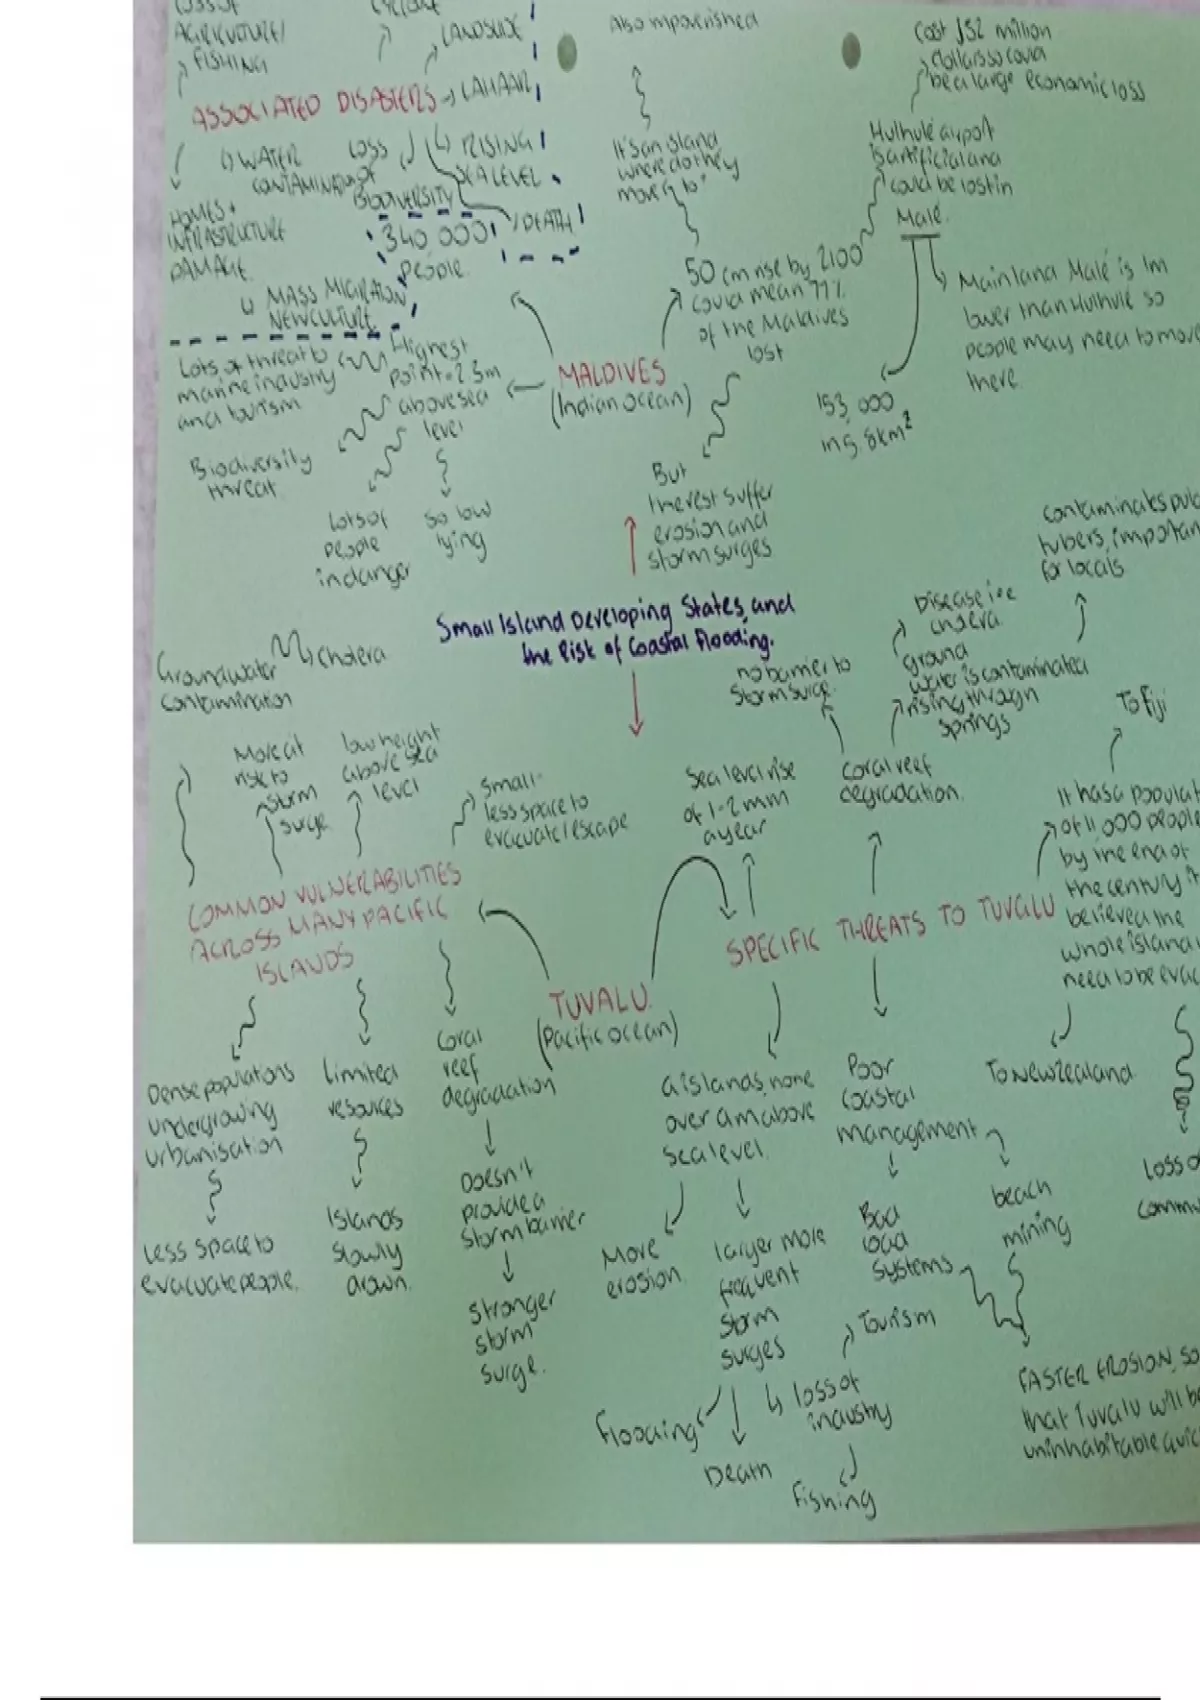 AGRICULTURE/
FISHING
LANDSLIDE
ASSOCIATED DISASTERS → LAHAAR
WATER
CONTAMINATION
LOSS
OF
BIODIVERSITY
RISING
SEA LEVEL
DEATH
HOMES +
INFRASTRUCTURE
DAMAGE
340 000
people
MASS MIGRATION
NEW CULTURE
Also impoverished
It's an island
where do they
move to?
Cost $52 million
dollars so could
be a large economic loss
Hulhulé airport
is artificial and
could be lost in
Malé.
Mainland Malé is 1m
lower than Hulhulé so
people may need to move
there.
153,000
in 5.8km²
50 cm rise by 2100
could mean 77%
of the Maldives
lost
MALDIVES
(Indian ocean)
Highest
point = 2.5m
above sea
level
Lots of threat to
marine industry
and tourism
Biodiversity
threat.
Lots of
people
in danger
so low
lying
But
the rest suffer
erosion and
storm surges
Small Island Developing States, and
the Risk of Coastal Flooding.
Groundwater
contamination
cholera
More at
risk to
storm
surge
low height
above sea
level
small-
less space to
evacuate/escape
COMMON VULNERABILITIES
ACROSS MANY PACIFIC
ISLANDS
Dense populations
undergrowing
urbanisation
Less space to
evacuate people.
Limited
resources
Islands
slowly
drown.
Coral
reef
degradation
Doesn't
provide a
storm barrier
stronger
storm
surge.
TUVALU
(Pacific ocean)
SPECIFIC THREATS TO TUVALU
Sea level rise
of 1-2mm
a year
no barrier to
storm surge.
coral reef
degradation.
Disease i.e
cholera
ground
water is contaminated
rising through
springs
tubers, important
for locals
To Fiji
It has a
of 11 000 people
by the end of
the century it
believed the
whole island
need to be
To New Zealand
Loss of
islands, none
over 4m above
sea level.
More
erosion.
larger more
frequent
storm
surges
Flooding
Death
loss of
industry
Tourism
Fishing
Poor
coastal
management
Bad
road
systems
beach
mining
FASTER EROSION, SO
that Tuvalu will be
uninhabitable